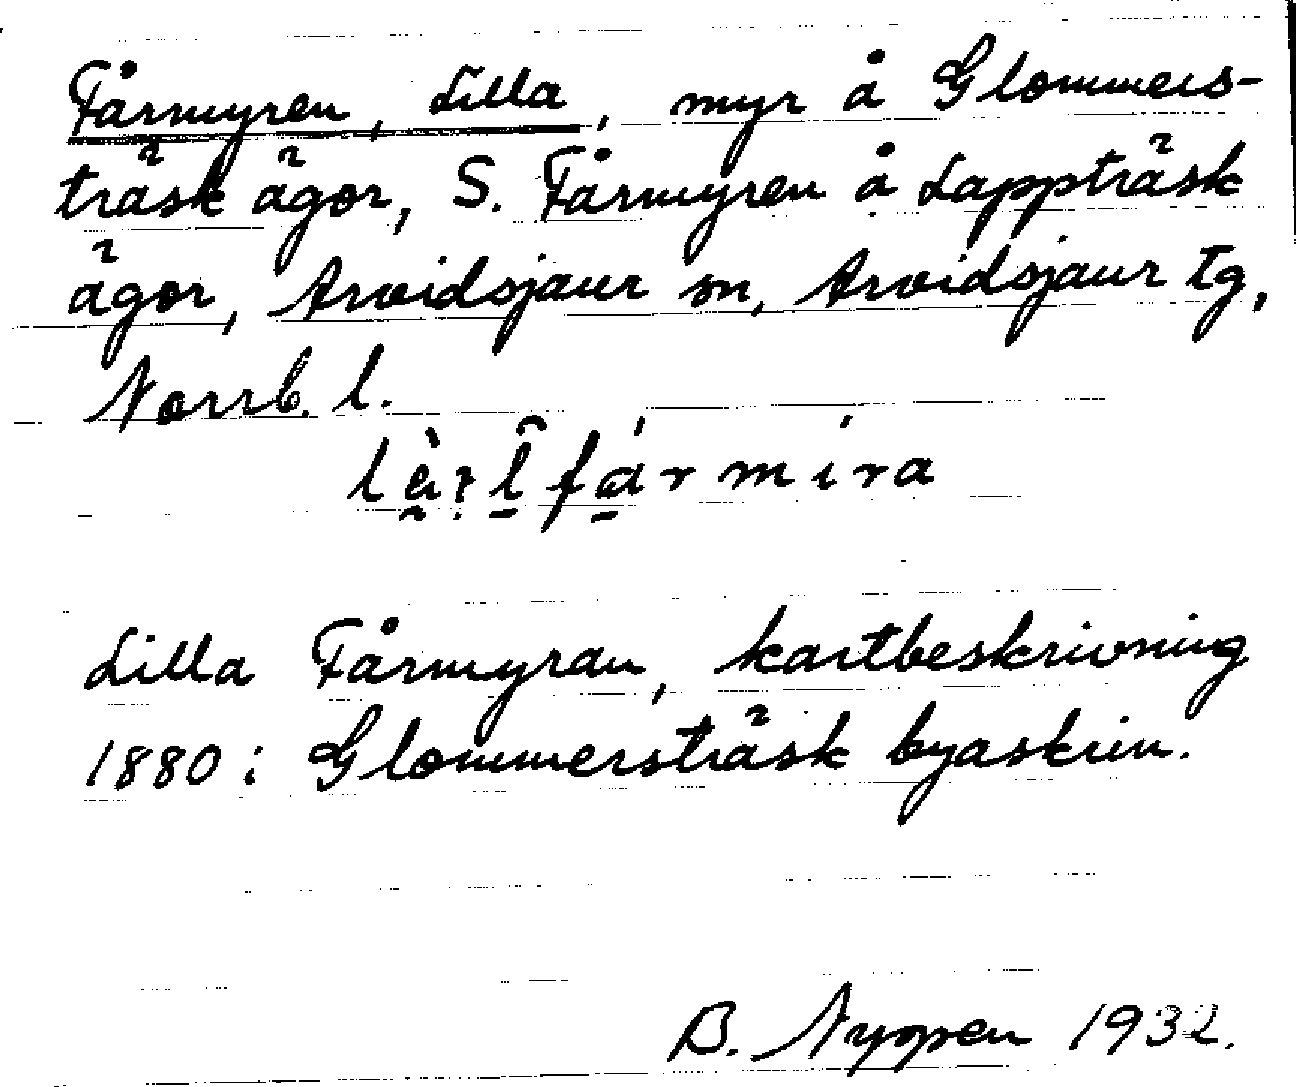 Fårmyren, Lilla, myr å Glommers-
träsk ägor, S. Fårmyren å Lappträsk
ägor, Arvidsjaur sn, Arvidsjaur tg,
Norrb. l.
Lilla Fårmyran, kartbeskrivning
1880 i Glommersträsk byaskrin.
B. Nyopen 1932.